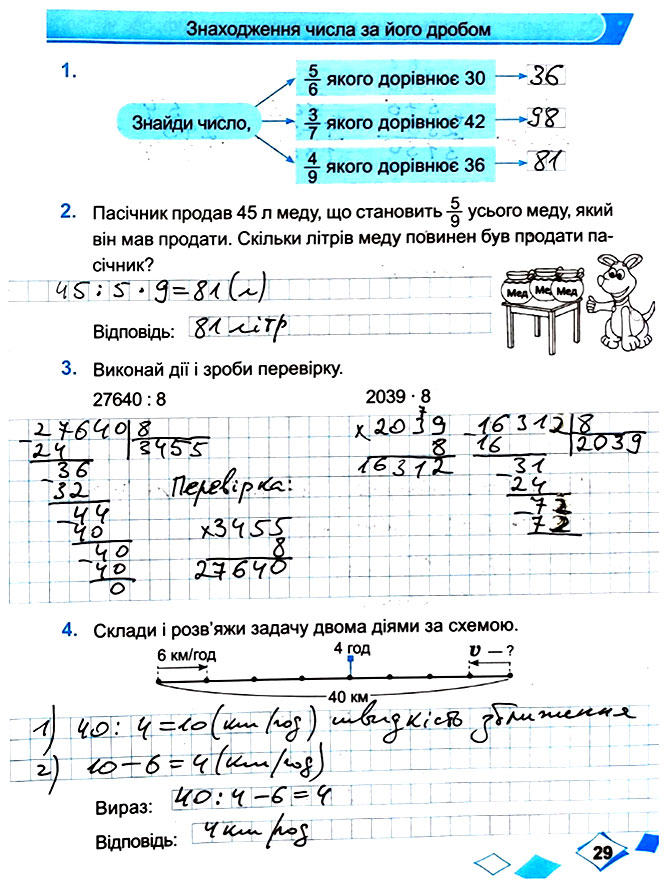 Знаходження числа за його дробом
1.
5/6 якого дорівнює 30 36
Знайди число, 3/7 якого дорівнює 42 98
4/9 якого дорівнює 36 81
2. Пасічник продав 45 л меду, що становить 5/9 усього меду, який
він мав продати. Скільки літрів меду повинен був продати па-
січник?
45 : 5 · 9 = 81 (л)
Мед Мед Мед
Відповідь: 81 літр
3. Виконай дії і зроби перевірку.
27640 : 8 2039 · 8
- 27640 | 8
24 3455
- 36
32
- 44
40
- 40
40
0
Перевірка:
x 3455
8
27640
7
x 2039
8
16312
- 16312 | 8
16 2039
- 31
24
- 72
72
4. Склади і розв'яжи задачу двома діями за схемою.
6 км/год 4 год v — ?
40 км
1) 40 : 4 = 10 (км/год) швидкість зближення
2) 10 - 6 = 4 (км/год)
Вираз: 40 : 4 - 6 = 4
Відповідь: 4 км/год
29